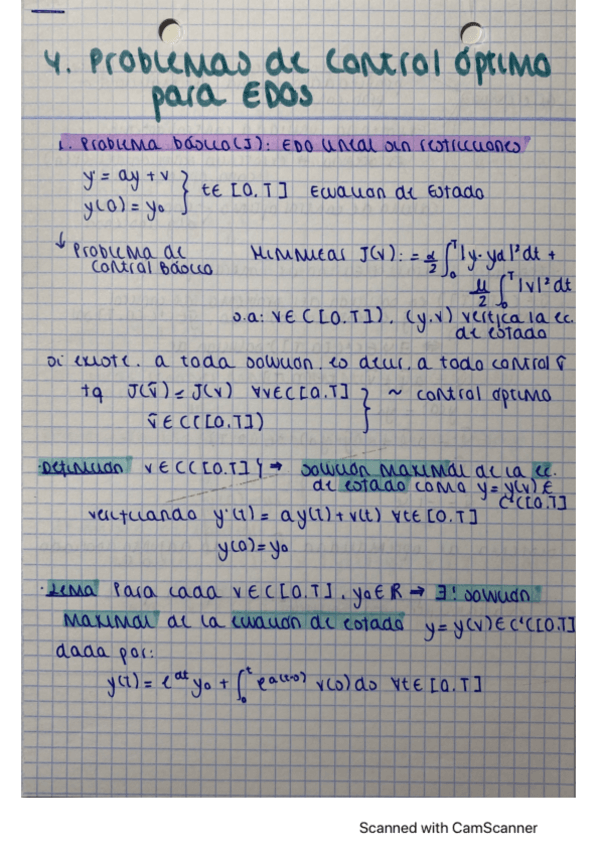 4. Problemas de control óptimo
para EDOs
1. Problema básico (I): EDO lineal sin restricciones
y' = ay + v
y(0) = y₀ } t ∈ [0,T] Ecuación de Estado
↳ Problema de control básico
Minimizar J(v) := α/2 ∫₀ᵀ |y - yd|² dt +
μ/2 ∫₀ᵀ |v|² dt
s.a: v ∈ C([0,T]), (y,v) verifica la ec.
de estado
Si existe, a toda solución, es decir, a todo control v̄
tq J(v̄) ≤ J(v) ∀v ∈ C[0,T]
v̄ ∈ C([0,T]) } ~ control óptimo
·Definición v ∈ C([0,T]) → solución maximal de la ec.
de estado como y = y(v) ∈
C¹([0,T]
verificando y'(t) = ay(t) + v(t) ∀t ∈ [0,T]
y(0) = y₀
·Lema Para cada v ∈ C[0,T], y₀ ∈ R → ∃! solución
maximal de la ecuación de estado y = y(v) ∈ C¹([0,T]
dada por:
y(t) = e^{at} y₀ + ∫₀ᵗ e^{a(t-s)} v(s) ds ∀t ∈ [0,T]
Scanned with CamScanner